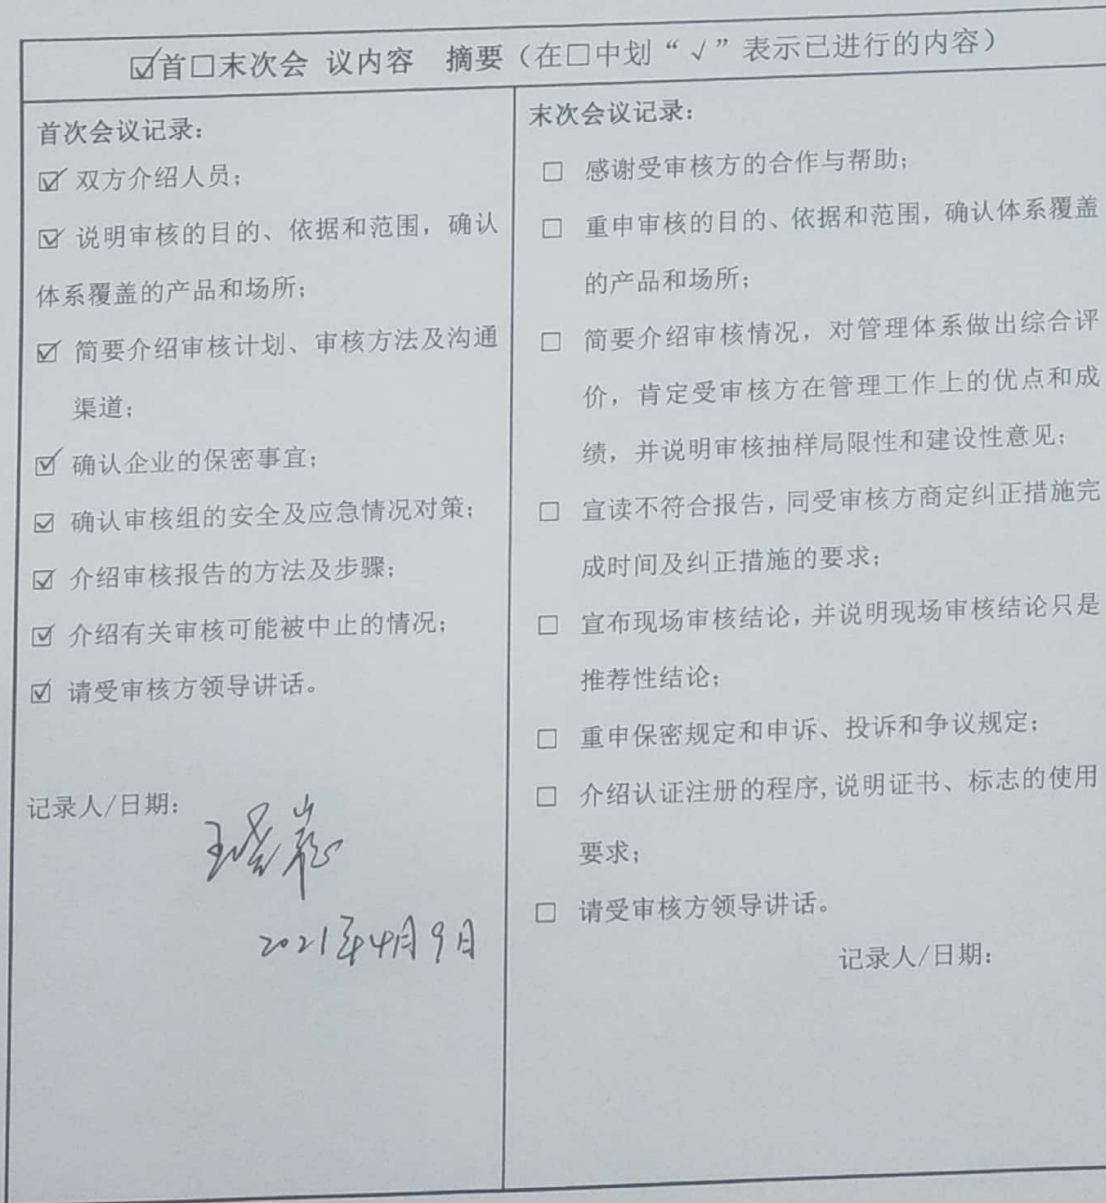 ☑首□末次会 议内容 摘要（在□中划“√”表示已进行的内容）
首次会议记录：
☑ 双方介绍人员；
☑ 说明审核的目的、依据和范围，确认
体系覆盖的产品和场所；
☑ 简要介绍审核计划、审核方法及沟通
渠道；
☑ 确认企业的保密事宜；
☑ 确认审核组的安全及应急情况对策；
☑ 介绍审核报告的方法及步骤；
☑ 介绍有关审核可能被中止的情况；
☑ 请受审核方领导讲话。
记录人/日期：
2021年4月9日
末次会议记录：
□ 感谢受审核方的合作与帮助；
□ 重申审核的目的、依据和范围，确认体系覆盖
的产品和场所；
□ 简要介绍审核情况，对管理体系做出综合评
价，肯定受审核方在管理工作上的优点和成
绩，并说明审核抽样局限性和建设性意见；
□ 宣读不符合报告，同受审核方商定纠正措施完
成时间及纠正措施的要求；
□ 宣布现场审核结论，并说明现场审核结论只是
推荐性结论；
□ 重申保密规定和申诉、投诉和争议规定；
□ 介绍认证注册的程序，说明证书、标志的使用
要求；
□ 请受审核方领导讲话。
记录人/日期：